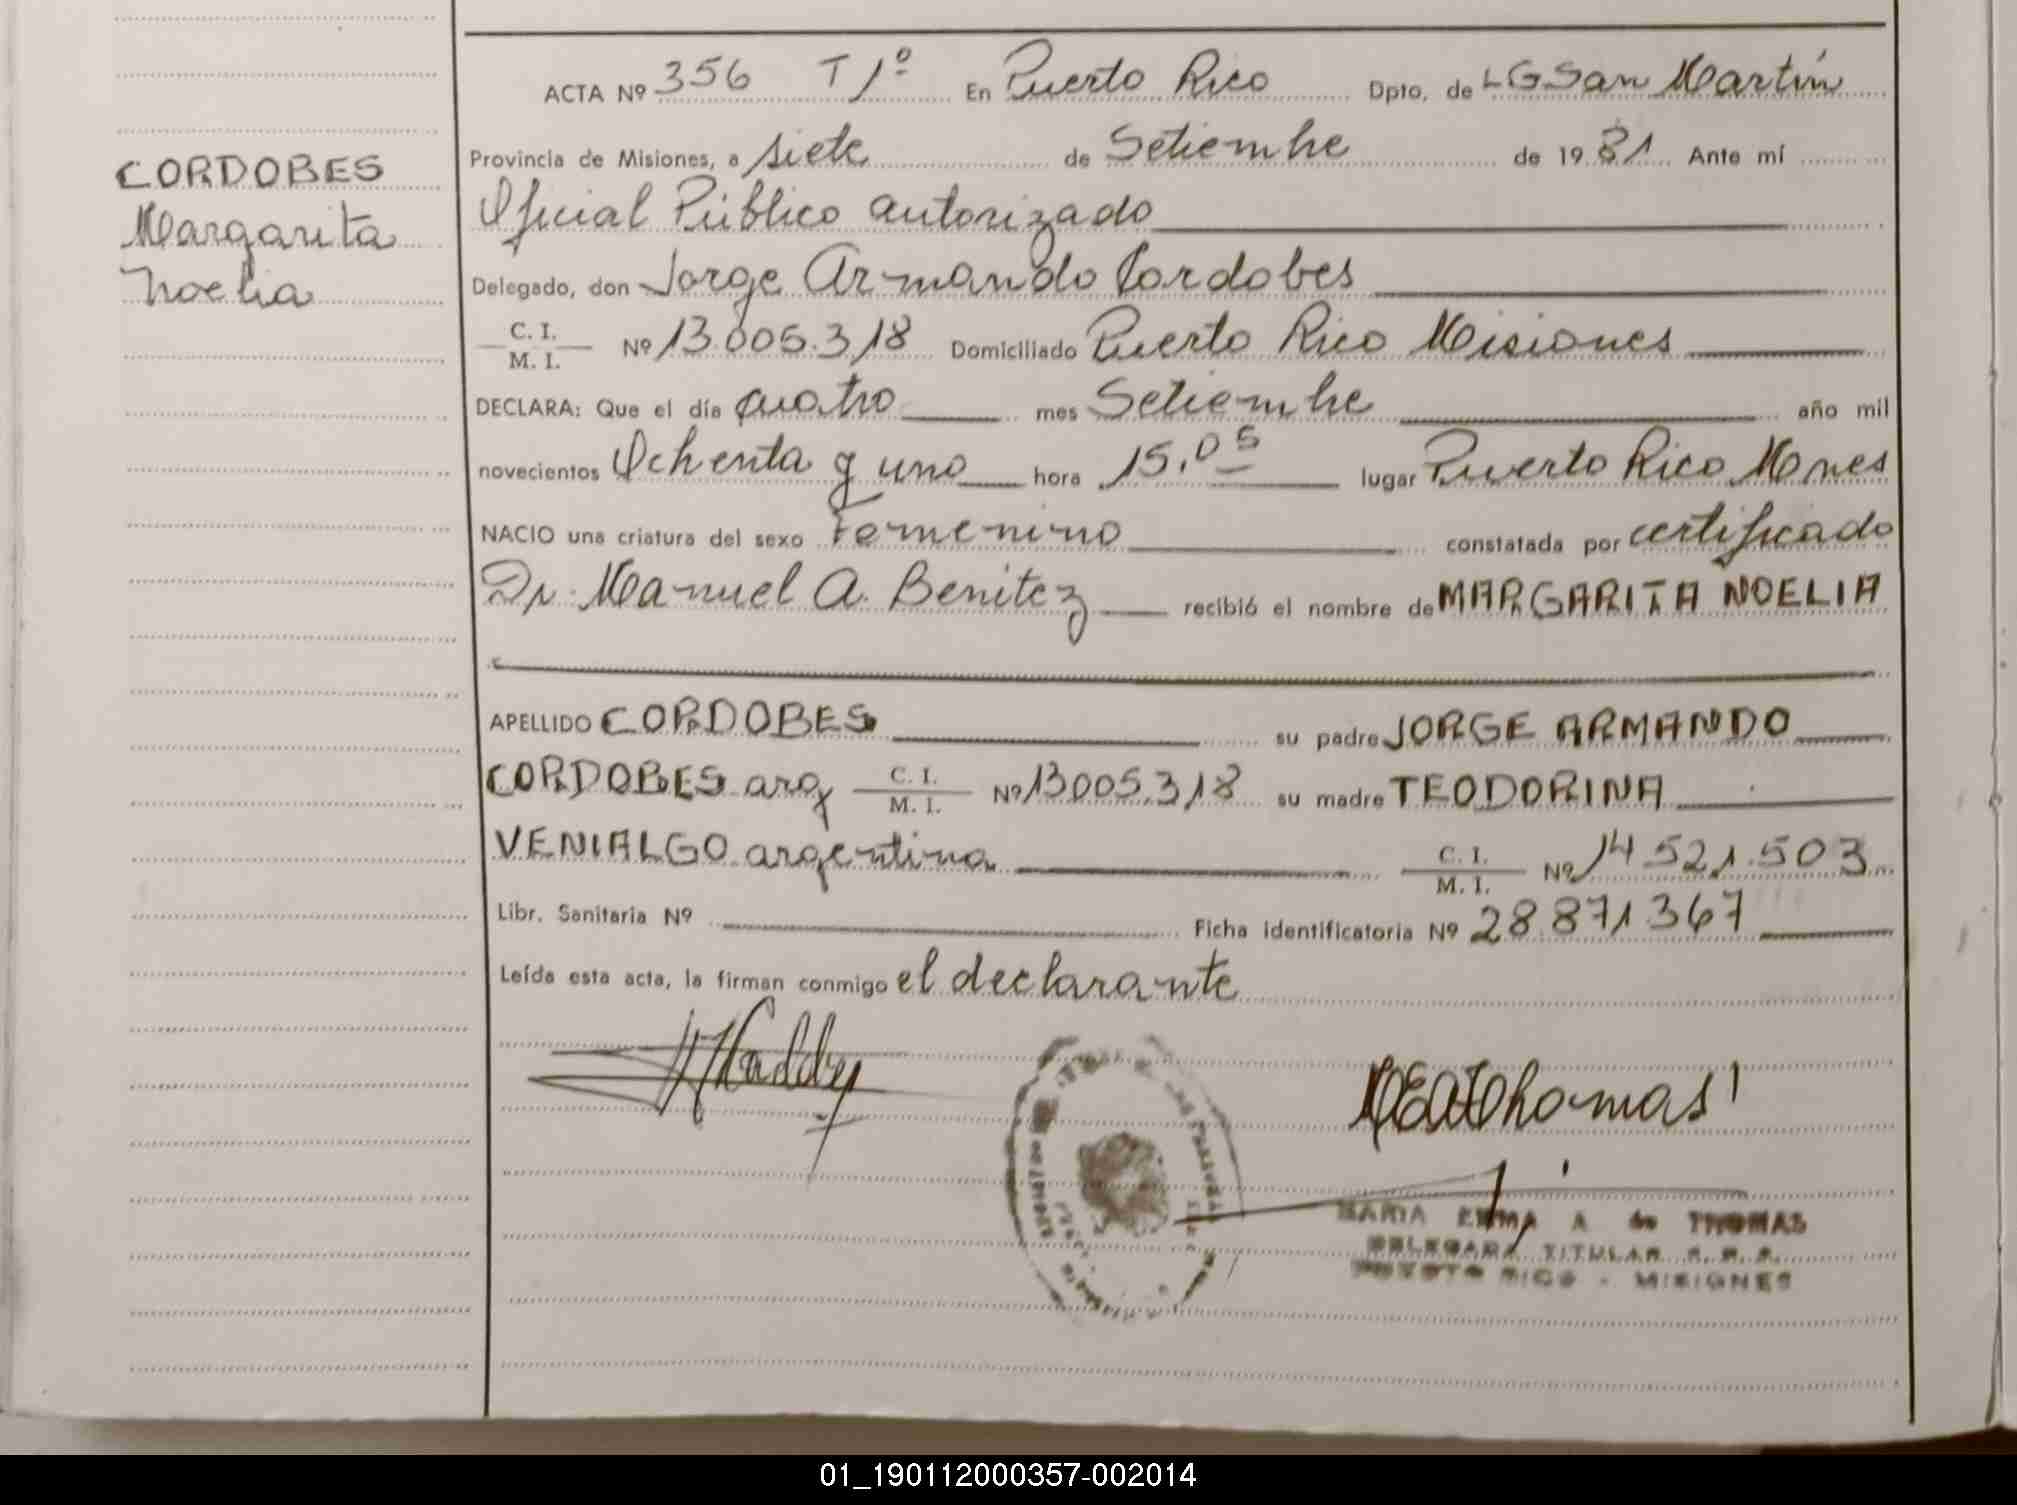 ACTA Nº 356 T 1º En Puerto Rico Dpto. de LG San Martín
CORDOBES
Margarita
Noelia
Provincia de Misiones, a siete de Setiembre de 1981 Ante mí
Oficial Público autorizado
Delegado, don Jorge Armando Cordobes
C. I.
M. I. Nº 13.005.318 Domiciliado Puerto Rico Misiones
DECLARA: Que el día cuatro mes Setiembre año mil
novecientos Ochenta y uno hora 15,05 lugar Puerto Rico Mnes
NACIO una criatura del sexo Femenino constatada por certificado
Dr. Manuel A. Benitez recibió el nombre de MARGARITA NOELIA
APELLIDO CORDOBES su padre JORGE ARMANDO
CORDOBES arg C. I. M. I. Nº 13005.318 su madre TEODORINA
VENIALGO argentina C. I. M. I. Nº 14 521.503
Libr. Sanitaria Nº Ficha identificatoria Nº 28.871367
Leída esta acta, la firman conmigo el declarante
MARIA EMMA A de THOMAS
DELEGADA TITULAR
PUERTO RICO - MISIONES
01_190112000357-002014